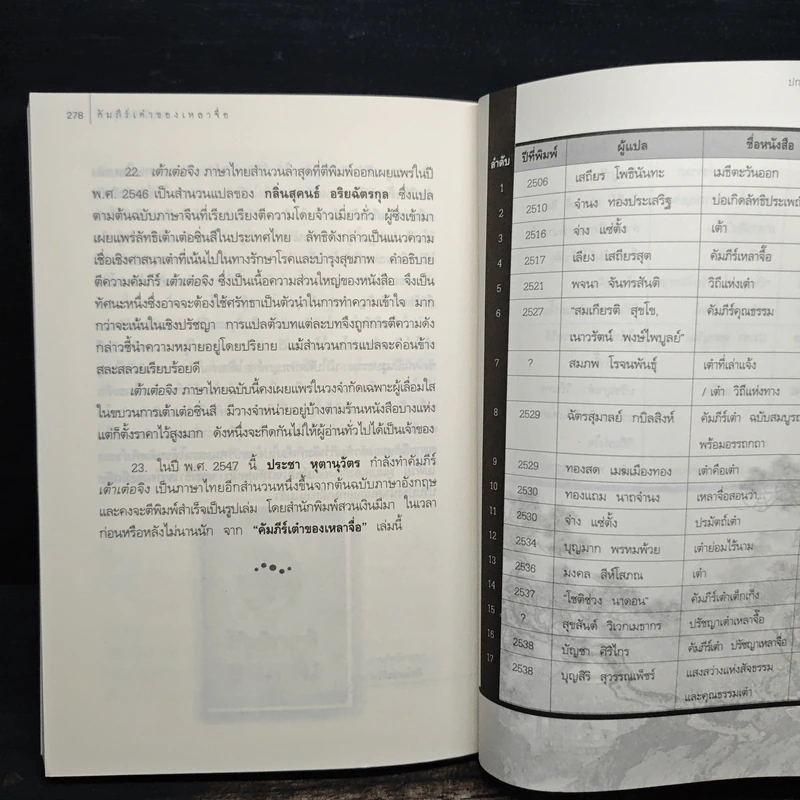 278 คัมภีร์เต๋าของเหลาจื่อ
22. เต้าเต๋อจิง ภาษาไทยสำนวนล่าสุดที่ตีพิมพ์ออกเผยแพร่ในปี
พ.ศ. 2546 เป็นสำนวนแปลของ กลิ่นสุคนธ์ อริยฉัตรกุล ซึ่งแปล
ตามต้นฉบับภาษาจีนที่เรียบเรียงตีความโดยจ้าวเมี่ยวกั่ว ผู้ซึ่งเข้ามา
เผยแพร่ลัทธิเต้าเต๋อซิ่นสีในประเทศไทย ลัทธิดังกล่าวเป็นแนวความ
เชื่อเชิงศาสนาเต๋าที่เน้นไปในทางรักษาโรคและบำรุงสุขภาพ คำอธิบาย
ตีความคัมภีร์ เต้าเต๋อจิง ซึ่งเป็นเนื้อความส่วนใหญ่ของหนังสือ จึงเป็น
ทัศนะหนึ่งซึ่งอาจจะต้องใช้ศรัทธาเป็นตัวนำในการทำความเข้าใจ มาก
กว่าจะเน้นในเชิงปรัชญา การแปลตัวบทแต่ละบทจึงถูกการตีความดัง
กล่าวชี้นำความหมายอยู่โดยปริยาย แม้สำนวนการแปลจะค่อนข้าง
สละสลวยเรียบร้อยดี
เต้าเต๋อจิง ภาษาไทยฉบับนี้คงเผยแพร่ในวงจำกัดเฉพาะผู้เลื่อมใส
ในขบวนการเต้าเต๋อซิ่นสี มีวางจำหน่ายอยู่บ้างตามร้านหนังสือบางแห่ง
แต่ก็ตั้งราคาไว้สูงมาก ดังหนึ่งจะกีดกันไม่ให้ผู้อ่านทั่วไปได้เป็นเจ้าของ
23. ในปี พ.ศ. 2547 นี้ ประชา หุตานุวัตร กำลังทำคัมภีร์
เต้าเต๋อจิง เป็นภาษาไทยอีกสำนวนหนึ่งขึ้นจากต้นฉบับภาษาอังกฤษ
และคงจะตีพิมพ์สำเร็จเป็นรูปเล่ม โดยสำนักพิมพ์สวนเงินมีมา ในเวลา
ก่อนหรือหลังไม่นานนัก จาก “คัมภีร์เต๋าของเหลาจื่อ” เล่มนี้
ลำดับ ปีที่พิมพ์ ผู้แปล ชื่อหนังสือ
1 2506 เสถียร โพธินันทะ เมธีตะวันออก
2 2510 จำนง ทองประเสริฐ บ่อเกิดลัทธิประเพณี
3 2516 จ่าง แซ่ตั้ง เต้า
4 2517 เลียง เสถียรสุต คัมภีร์เหลาจื๊อ
5 2521 พจนา จันทรสันติ วิถีแห่งเต๋า
6 2527 "สมเกียรติ สุขโข, คัมภีร์คุณธรรม
เนาวรัตน์ พงษ์ไพบูลย์"
7 ? สมภพ โรจนพันธุ์ เต๋าที่เล่าแจ้ง
/ เต๋า วิถีแห่งทาง
8 2529 ฉัตรสุมาลย์ กบิลสิงห์ คัมภีร์เต๋า ฉบับสมบูรณ์
พร้อมอรรถกถา
9 2529 ทองสด เมฆเมืองทอง เต๋าคือเต๋า
10 2530 ทองแถม นาถจำนง เหลาจื่อสอนว่า
11 2530 จ่าง แซ่ตั้ง ปรมัตถ์เต๋า
12 2534 บุญมาก พรหมพ้วย เต๋าย่อมไร้นาม
13 2536 มงคล สีห์โสภณ เต๋า
14 2537 "โชติช่วง นาดอน" คัมภีร์เต๋าเต็กเก็ง
15 ? สุขสันต์ วิเวกเมธากร ปรัชญาเต๋าเหลาจื๊อ
16 2538 บัญชา ศิริไกร คัมภีร์เต๋า ปรัชญาเหลาจื๊อ
17 2538 บุญสิริ สุวรรณเพ็ชร์ แสงสว่างแห่งสัจธรรม
และคุณธรรมเต๋า